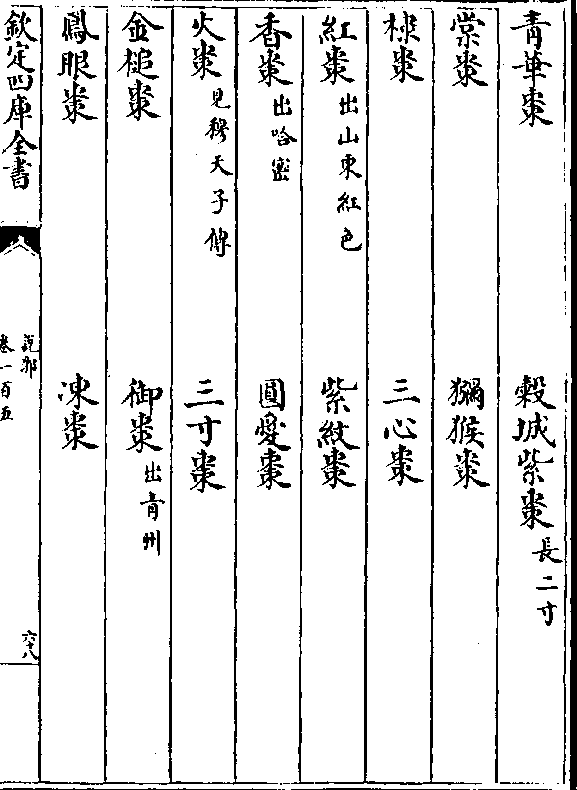 青華棗 穀城紫棗長二寸
棠棗 獼猴棗
棣棗 三心棗
紅棗出山東紅色 紫紋棗
香棗出哈密 圓愛棗
火棗見穆天子傳 三寸棗
金槌棗 御棗出青州
鳳眼棗 凍棗
欽定四庫全書 說郛 卷一百五 六十八